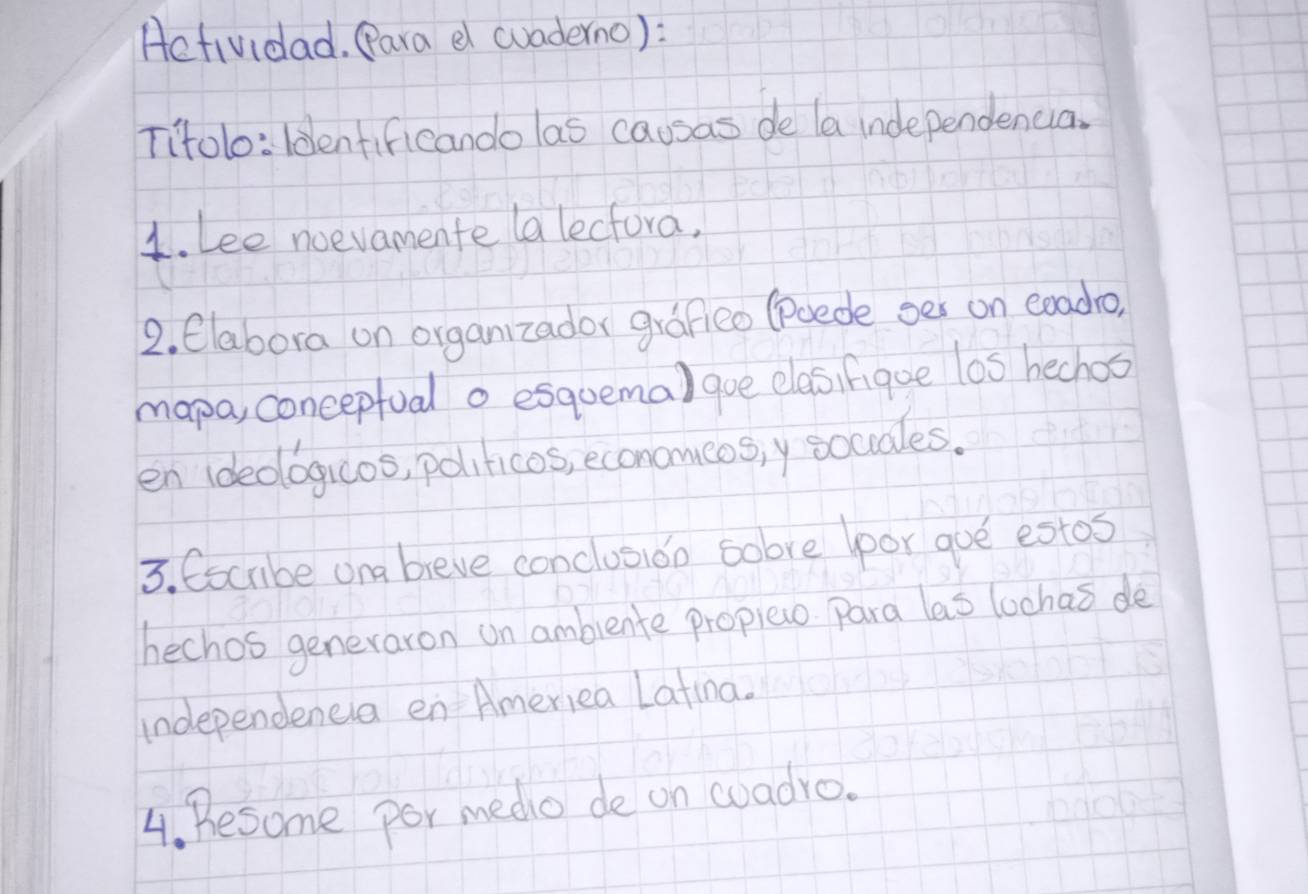 Actividad. (Para el cuaderno):
Título: Identificando las causas de la independencia.
1. Lee nuevamente la lectura.
2. Elabora un organizador gráfico (Puede ser un cuadro,
mapa, conceptual o esquema) que clasifique los hechos
en ideológicos, politicos, economicos, y sociales.
3. Escribe una breve conclusión sobre por qué estos
hechos generaron un ambiente propicio para las luchas de
independencia en America Latina.
4. Resume por medio de un cuadro.